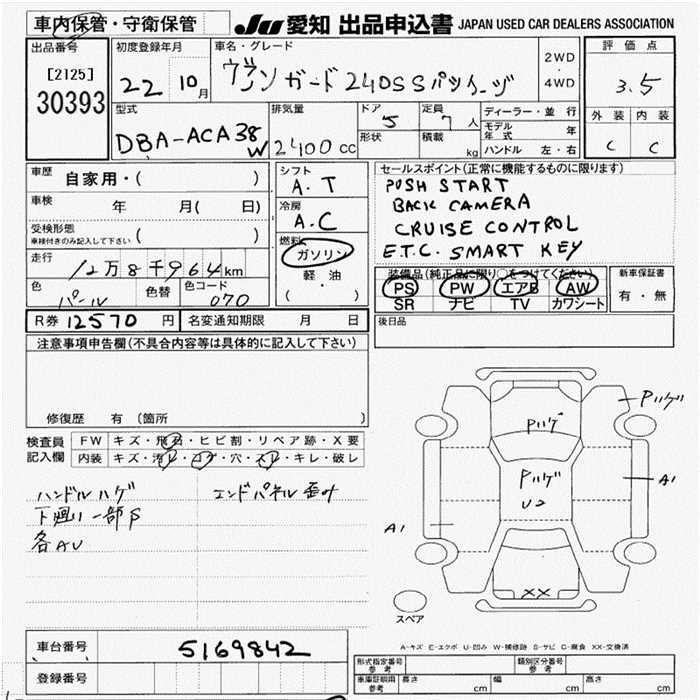 車内保管・守衛保管
JU 愛知 出品申込書 JAPAN USED CAR DEALERS ASSOCIATION
出品番号
[2125]
30393
初度登録年月
22 10月
車名・グレード
ヴァンガード 240S Sパッケージ
2WD
・
4WD
評価点
3.5
外装 内装
C C
型式
DBA-ACA38W
排気量
2400cc
ドア 5
形状
定員 7人
積載 kg
ディーラー・並行
モデル年式 年
ハンドル 左・右
車歴 自家用・( )
車検 年 月( 日)
受検形態
車検付きのみ記入して下さい ( )
走行 12万8千964km
色 パール
色替
色コード 070
シフト
A.T
冷房
A.C
燃料
ガソリン
軽・油
( ・ )
セールスポイント(正常に機能するものに限ります)
PUSH START
BACK CAMERA
CRUISE CONTROL
E.T.C. SMART KEY
装備品(純正品に限り○をつけてください)
PS PW エアB AW
SR ナビ TV カワシート
新車保証書
有・無
R券 12570円 名変通知期限 月 日
後日品
注意事項申告欄(不具合内容等は具体的に記入して下さい)
修復歴 有 (箇所 )
検査員記入欄
FW キズ・飛石・ヒビ割・リペア跡・X要
内装 キズ・汚レ・コゲ・穴・スレ・キレ・破レ
ハンドルハゲ
エンドパネル歪み
下廻り一部P
各AU
Pハゲ
Pハゲ
Pハゲ
U2
A1
A1
XX
スペア
A-キズ E-エクボ U-凹み W-補修跡 S-サビ C-腐食 XX-交換済
車台番号 5169842
登録番号
形式指定番号 参考
類別区分番号 参考
車庫証明用 参考
長さ cm 幅 cm 高さ cm